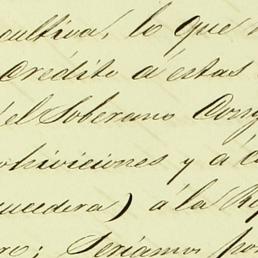 cultiva, lo que
crédito á estas
el Soberano Cong
ohiviciones y á l
ucedera) á la Rep
ro; Seriamos por